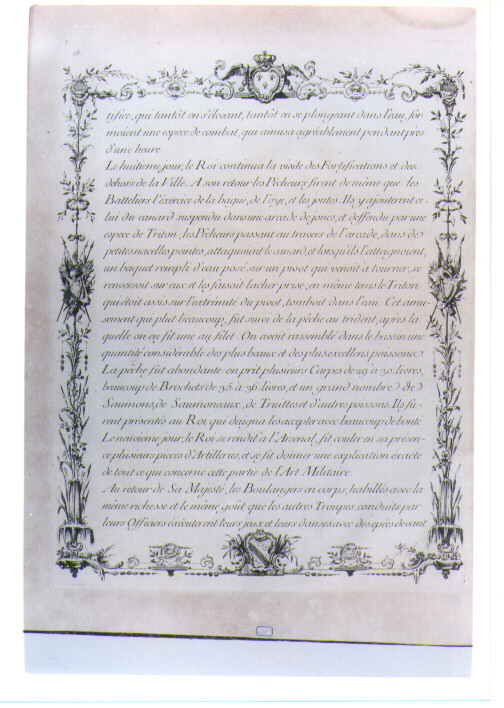 tifice, qui tantôt en s'élevant, tantôt en se plongeant dans l'eau, for
moient une espece de combat, qui amusa agréablement pendant près
d'une heure.
Le huitieme jour, le Roi continua la visite des Fortifications et des
dehors de la Ville. A son retour les Pêcheurs firent de même que les
Batteliers l'exercice de la bague, de l'oye, et les joutes. Ils y ajouterent ce-
lui du canard suspendu dans une arcade de joncs, et deffendu par une
espece de Triton; les Pêcheurs passant au travers de l'arcade, dans de
petites nacelles peintes, attaquoient le canard, et lorsqu'ils l'atteignoient,
un baquet rempli d'eau posé sur un pivot qui venoit à tourner, se
renversoit sur eux et les faisoit lacher prise, en même tems le Triton
qui étoit assis sur l'extrémité du pivot, tomboit dans l'eau. Cet amu-
sement qui plut beaucoup, fut suivi de la pêche au trident, après la
quelle on en fit une au filet. On avoit rassemblé dans le bassin une
quantité considérable des plus beaux et des plus excellens poissons.
La pêche fut abondante, on prit plusieurs Carpes de 29 à 30. livres,
beaucoup de Brochets de 35. à 36. livres, et un grand nombre de
Saumons, de Saumoneaux, de Truittes et d'autres poissons. Ils fu-
rent présentés au Roi qui daigna les accepter avec beaucoup de bonté.
Le neuvieme jour, le Roi se rendit à l'Arsenal, fit couler en sa présen-
ce plusieurs pieces d'Artillerie, et se fit donner une explication exacte
de tout ce qui concerne cette partie de l'Art Militaire.
Au retour de Sa Majesté, les Boulangers en corps, habillés avec la
même richesse et le même goût que les autres Troupes, conduits par
leurs Officiers éxécuterent leurs jeux et leurs danses avec des epées devant